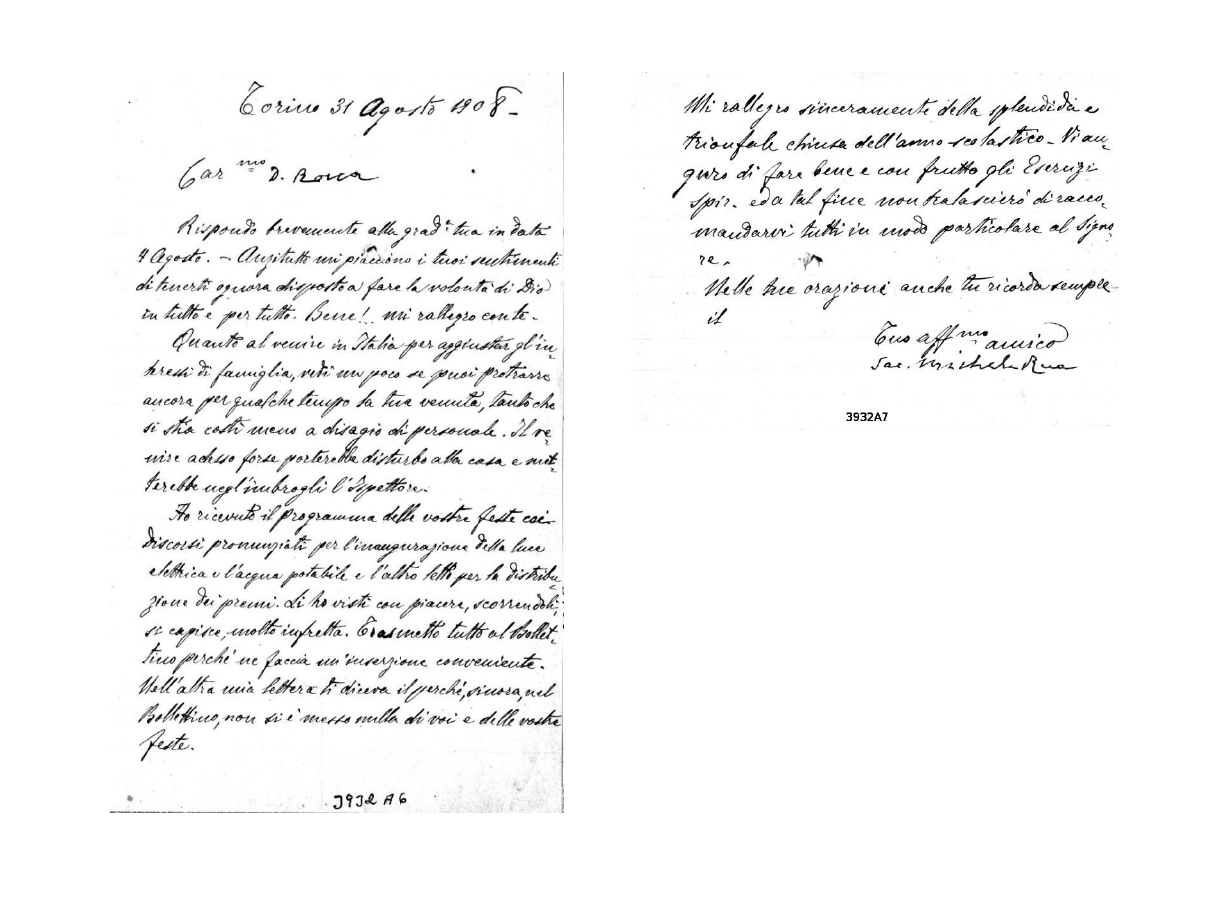 Torino 31 Agosto 1908 -
Car mo D. Rocca
Rispondo brevemente alla grad.a tua in data
4 Agosto. - Anzitutto mi piacciono i tuoi sentimenti
di tenerti ognora disposto a fare la volontà di Dio
in tutto e per tutto. Bene! mi rallegro con te.
Quanto al venire in Italia per aggiustar gl'in-
teressi di famiglia, vedi un poco se puoi protrarre
ancora per qualche tempo la tua venuta, tanto che
si stia costì meno a disagio di personale. Il ve-
nire adesso forse porterebbe disturbo alla casa e met-
terebbe negl'imbrogli l'Ispettore.
Ho ricevuto il programma delle vostre feste coi
discorsi pronunziati per l'inaugurazione della luce
elettrica e l'acqua potabile e l'altro letto per la distribu-
zione dei premi. Li ho visti con piacere, scorrendoli,
si capisce, molto in fretta. Trasmetto tutto al Bollet-
tino perché ne faccia un'inserzione conveniente.
Nell'altra mia lettera ti diceva il perché, sinora, nel
Bollettino, non si è messo nulla di voi e delle vostre
feste.
3932 A 6
Mi rallegro sinceramente della splendida e
trionfale chiusa dell'anno scolastico - Vi au-
guro di fare bene e con frutto gli Esercizi
spir. ed a tal fine non tralascierò di racco-
mandarvi tutti in modo particolare al Signo-
re.
Nelle tue orazioni anche tu ricorda sempre
il
Tuo aff mo amico
Sac. Michele Rua
3932A7